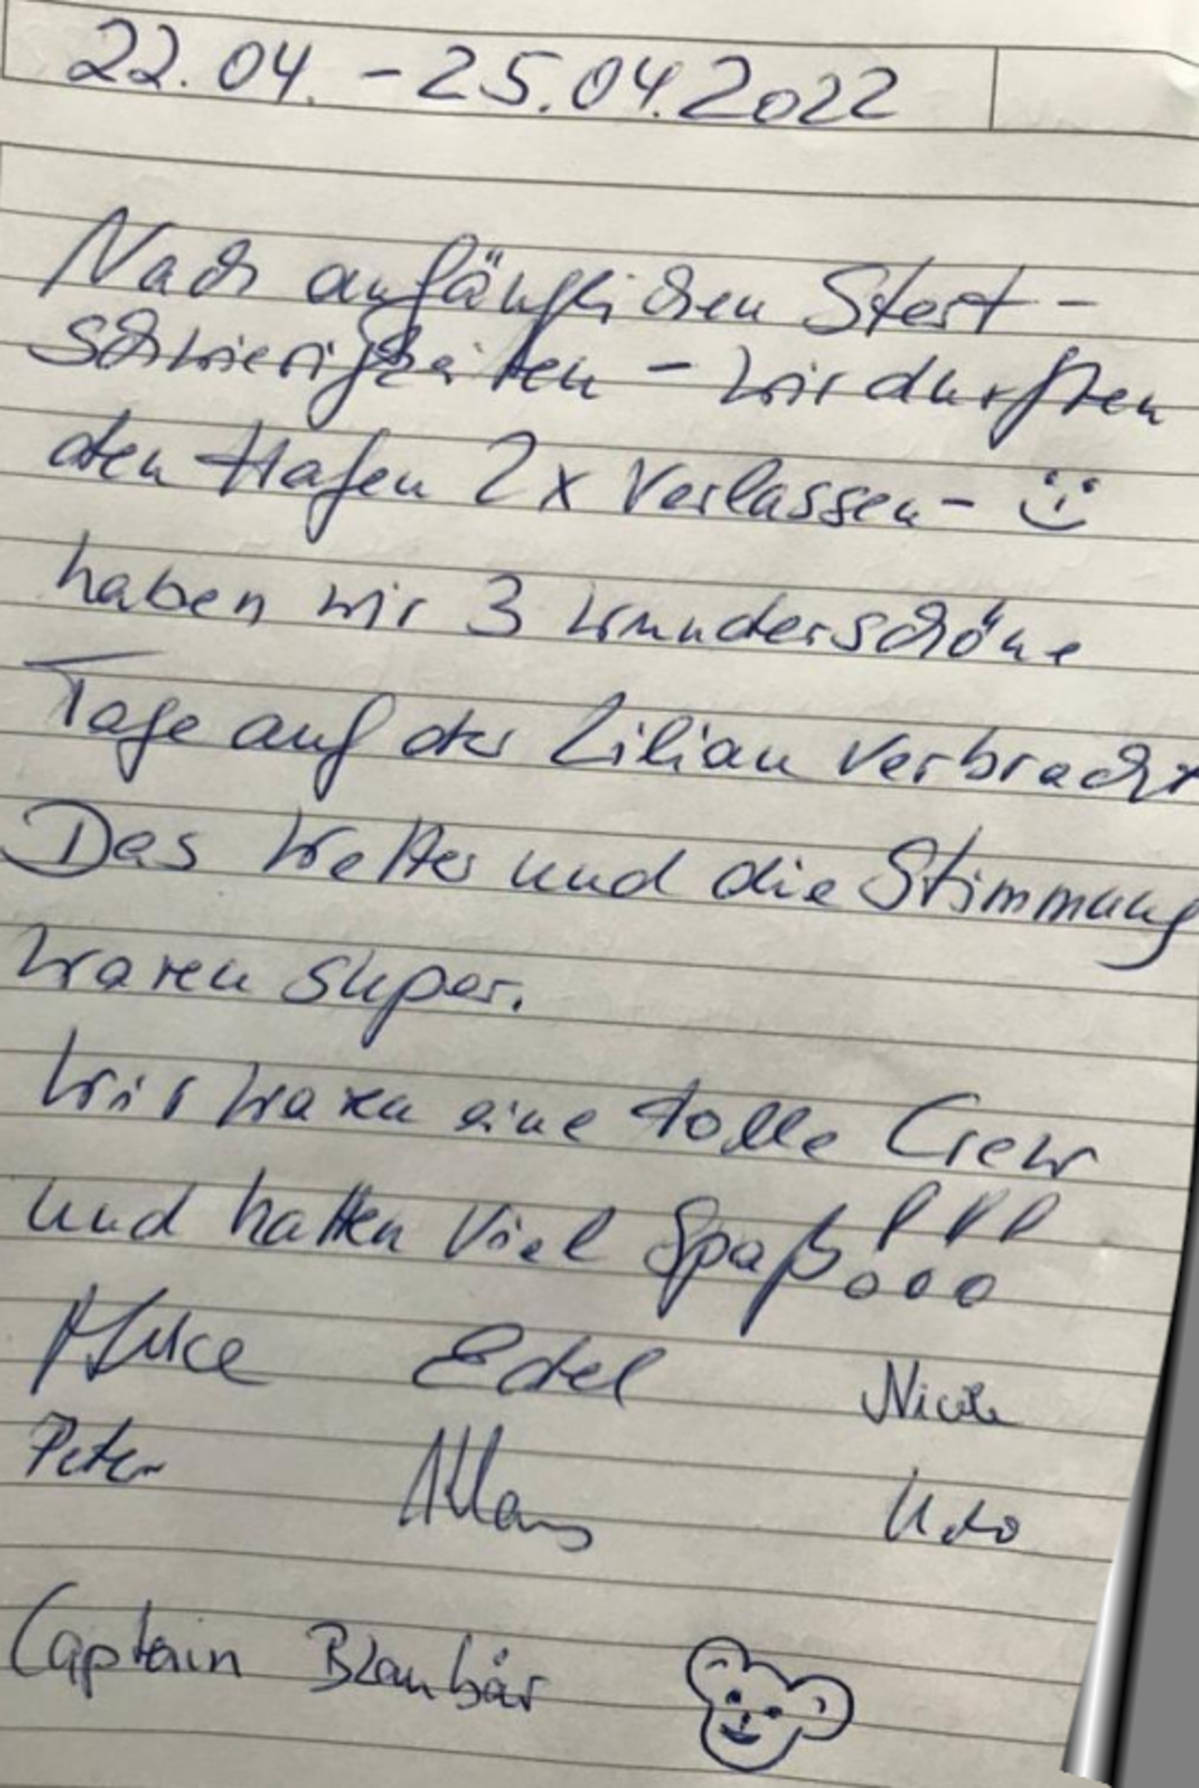 22.04. - 25.04.2022
Nach anfänglichen Start-
schwierigkeiten - wir durften
den Hafen 2x Verlassen -
haben wir 3 wunderschöne
Tage auf der Lilian verbracht
Das Wetter und die Stimmung
waren super.
Wir waren eine tolle Crew
und hatten Viel Spaß!!!
Edel Nicole
Peter Udo
Captain Blaubär